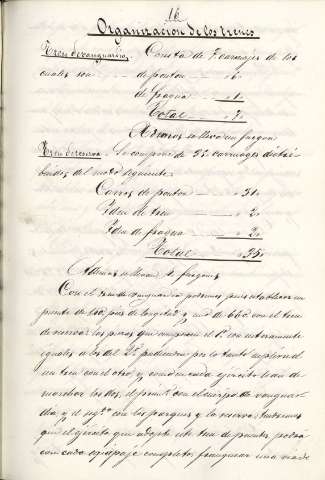 16
Organizacion de los trenes
Tren de vanguardia. Consta de 7 carruajes de los
cuales son de ponton 6.
de fragua 1.
Total 7.
Ademas se lleva un furgon
Tren de reserva. Se compone de 35 carruages distri-
buidos del modo siguiente
Carros de ponton 31.
Idem de tren 2.
Idem de fragua 2.
Total 35.
Ademas se llevan furgones
Con el tren de vanguardia podemos pues establecer un
puente de pies de longitud y uno de con el tren
de reserva. Las piezas que componen el 1º son enteramente
iguales a los del 2º pudiendo por lo tanto suplir al
un tren con el otro, y como en cada ejercito han de
marchar los dos, el primº con el cuerpo de vanguar-
dia, y el segdo con los parques y la reserva tendremos
que el ejercito que adopte este tren de puentes podrá
con cada equipaje completo franquear una